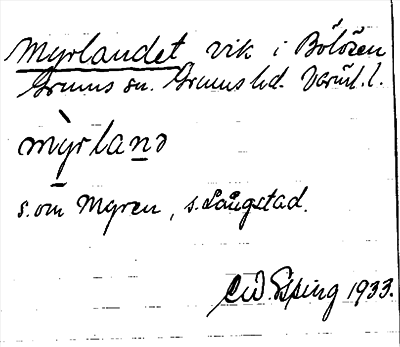 Myrlandet vik i Bölösen
Grums sn. Grums hd. Värml. l.
mỳrland
s. om Myren, s. Långstad.
Cid. Esping 1933.